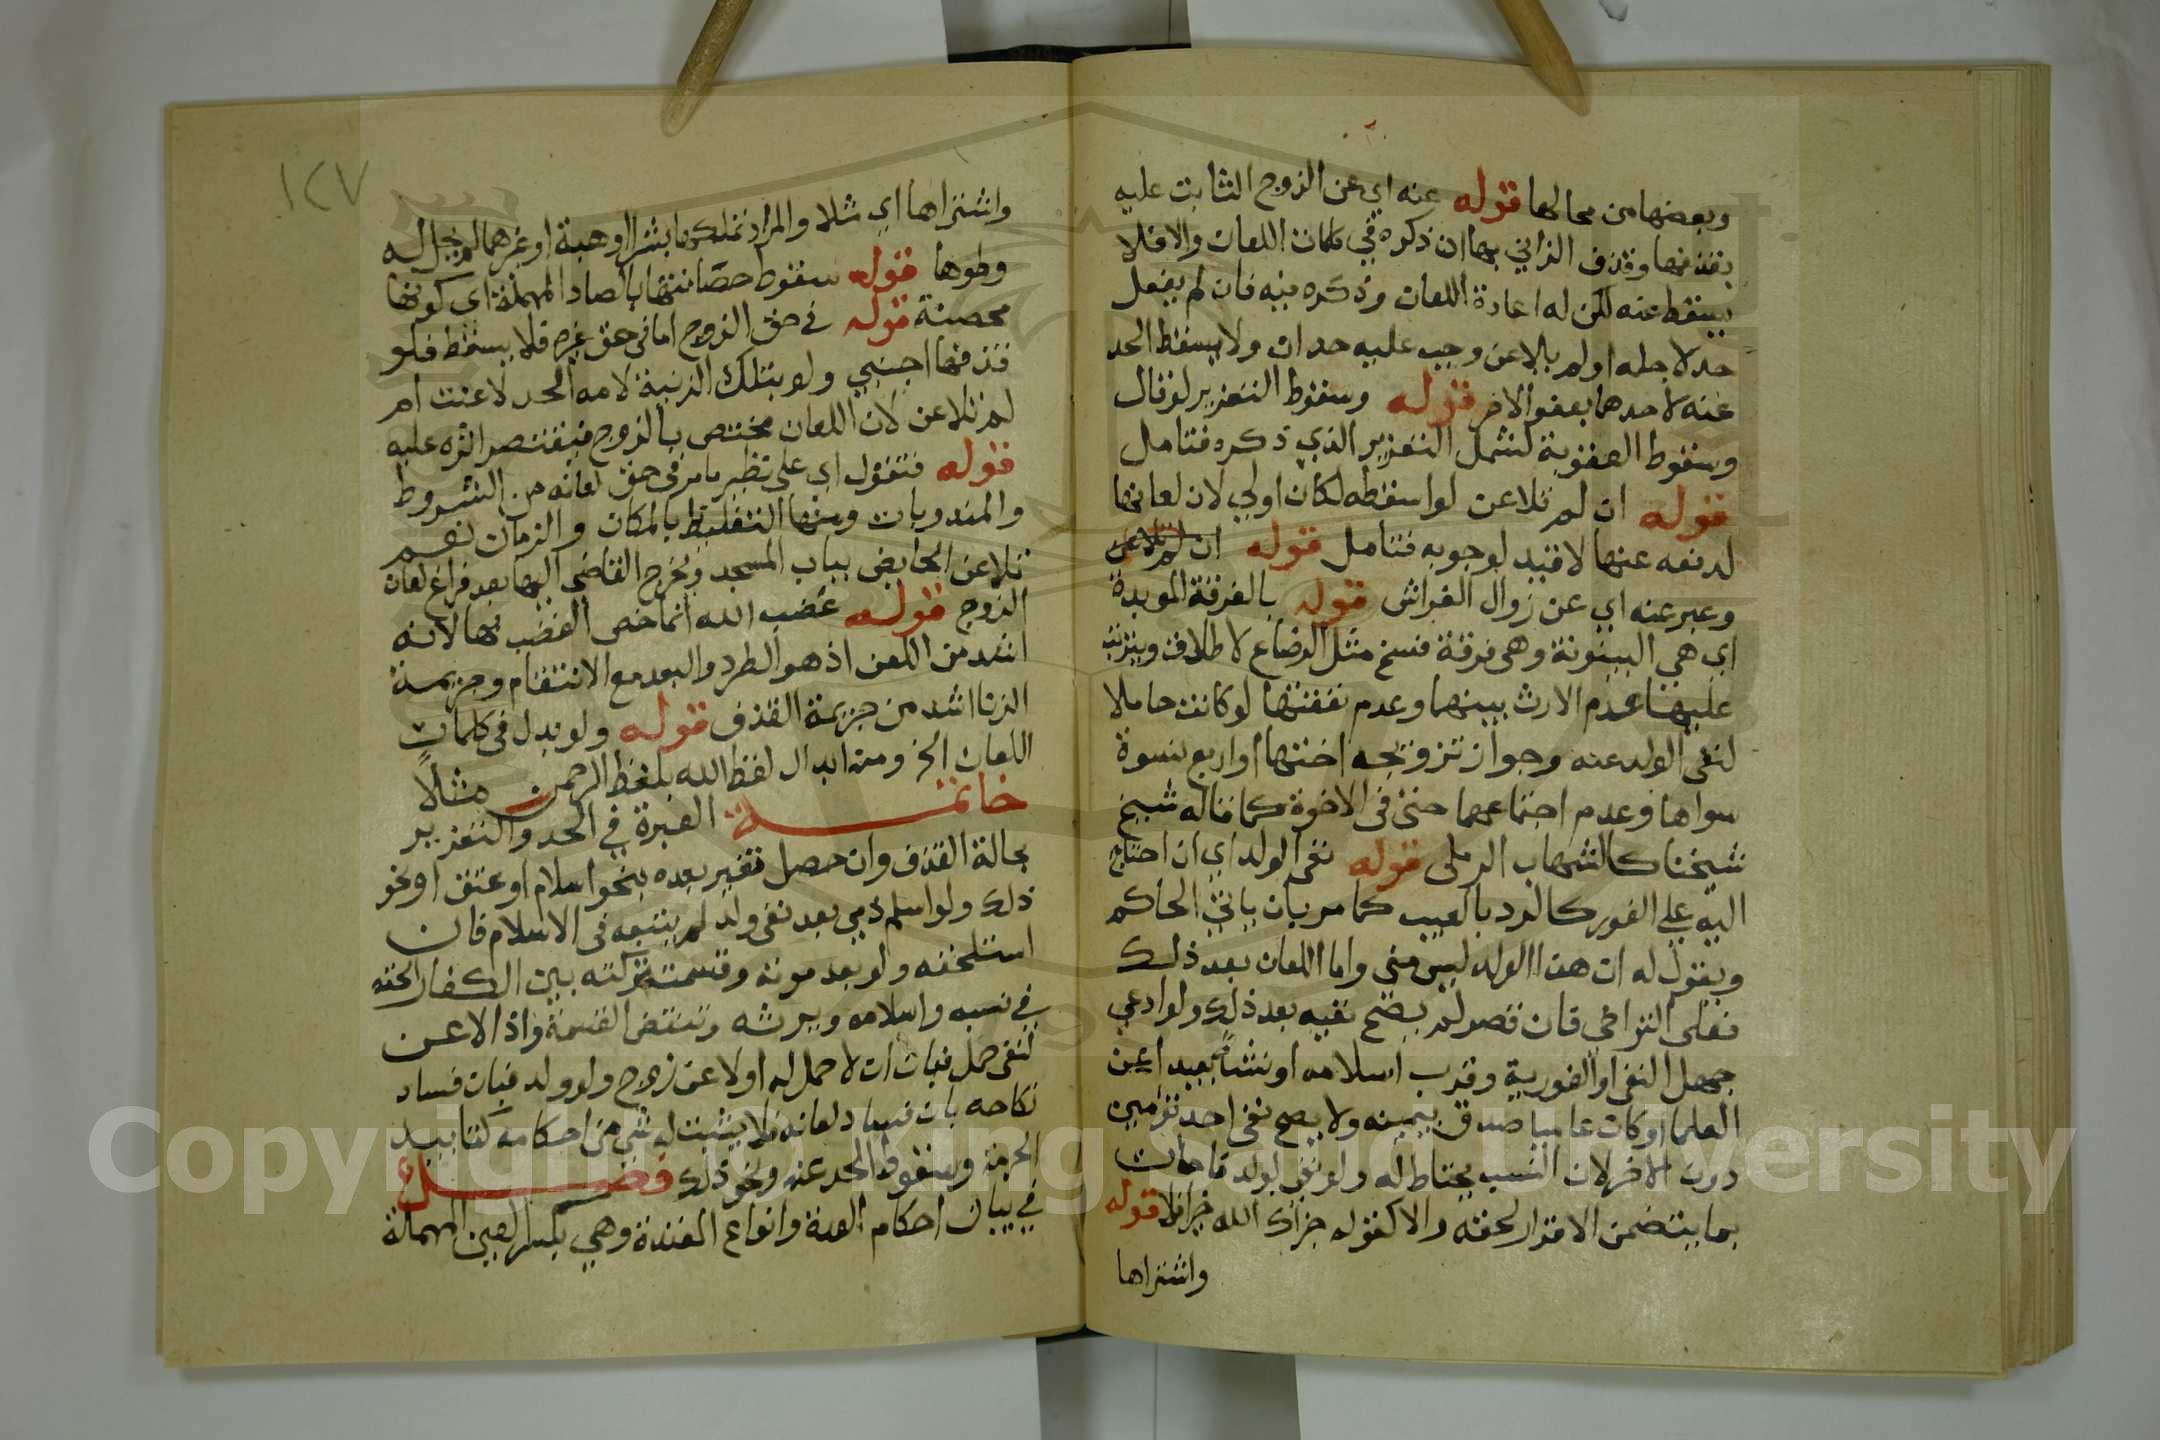 وبعضها من محالها قوله عنه اي عن الزوج الثابت عليه
بقذفها وقذف الزاني بها ان ذكره في كلمات اللعان والا فلا
يسقط عنه لكن له اعادة اللعان وذكره فيه فان لم يفعل
حد لاجله او لم يلاعن وجب عليه حدان ولا يسقط الحد
عنه لاحدهما بعفو الاخر قوله وسقوط التعزير لو قال
وسقوط العقوبة لشمل التعزير الذي ذكره فتامل
قوله ان لم تلاعن لو اسقطه لكان اولي لان لعانها
لدفعه عنها لا قيد لوجوبه فتامل قوله ان لم تلاعن
وعبر عنه اي عن زوال الفراش قوله بالفرقة الموبدة
اي هي البينونة وهي فرقة فسخ مثل الرضاع لا طلاق ويترتب
عليها عدم الارث بينهما وعدم نفقتها لو كانت حاملا
لنفي الولد عنه وجواز تزويجه اختها او اربع نسوة
سواها وعدم اجتماعهما حتى في الاخوة كما قاله شيخ
شيخنا كالشهاب الرملي قوله نفي الولد اي ان احتاج
اليه علي الفور كالرد بالعيب كما مر بان ياتي الحاكم
ويقول له ان هذا الولد ليس مني واما اللعان بعد ذلك
فعلى التراخي فان قصر لم يصح نفيه بعد ذلك ولو ادعي
جهل النفي او الفورية وقرب اسلامه او نشا بعيدا عن
العلما او كان عاميا صدق بيمينه ولا يصح نفي احد تؤمين
دون الاخر لان النسب يحتاط له ولو هني بولد فاجاب
بما يتضمن الاقرار لحقه والا كقوله جزاك الله خيرا فلا قوله
واشتراها
١٢٧
واشتراها اي مثلا والمراد تملكها بشرا او هبة او غيرهما لم يحل له
وطوها قوله سقوط حصانتها بالصاد المهملة اي كونها
محصنة قوله في حق الزوج اما في حق غيره فلا يسقط فلو
قذفها اجنبي ولو بتلك الزنية لامه الحد لاعنت ام
لم تلاعن لان اللعان مختص بالزوج فيقتصر اثره عليه
قوله فتقول اي على نظير ما مر في حق لعانه من الشروط
والمندوبات ومنها التغليظ بالمكان والزمان نعم
تلاعن الحايض بباب المسجد ويخرج القاضي اليها بعد فراغ لعان
الزوج قوله غضب الله انما خص الغضب بها لانه
اشد من اللعن اذ هو الطرد والبعد مع الانتقام وجريمة
الزنا اشد من جريمة القذف قوله ولو بدل في كلمات
اللعان الخ ومنه ابدال لفظ الله بلفظ الرحمن مثلا
خاتمة العبرة في الحد والتعزير
بحالة القذف وان حصل تغير بعده بنحو اسلام او عتق او نحو
ذلك ولو اسلم ذمي بعد نفي ولد لم يتبعه في الاسلام فان
استلحقه ولو بعد موته وقسمة تركته بين الكفار الحقه
في نسبه واسلامه ويرثه وتنتقض القسمة واذا لاعن
لنفي حمل فبان ان لا حمل له او لاعن زوج ولو ولد فبان فساد
نكاحه بان فساد لعانه فلا يثبت له شي من احكامه كتابيد
الحرمة وسقوط الحد عنه ونحو ذلك فصل
في بيان احكام العدة وانواع العتدة وهي بكسر العين المهملة
Copyright © King Saud University